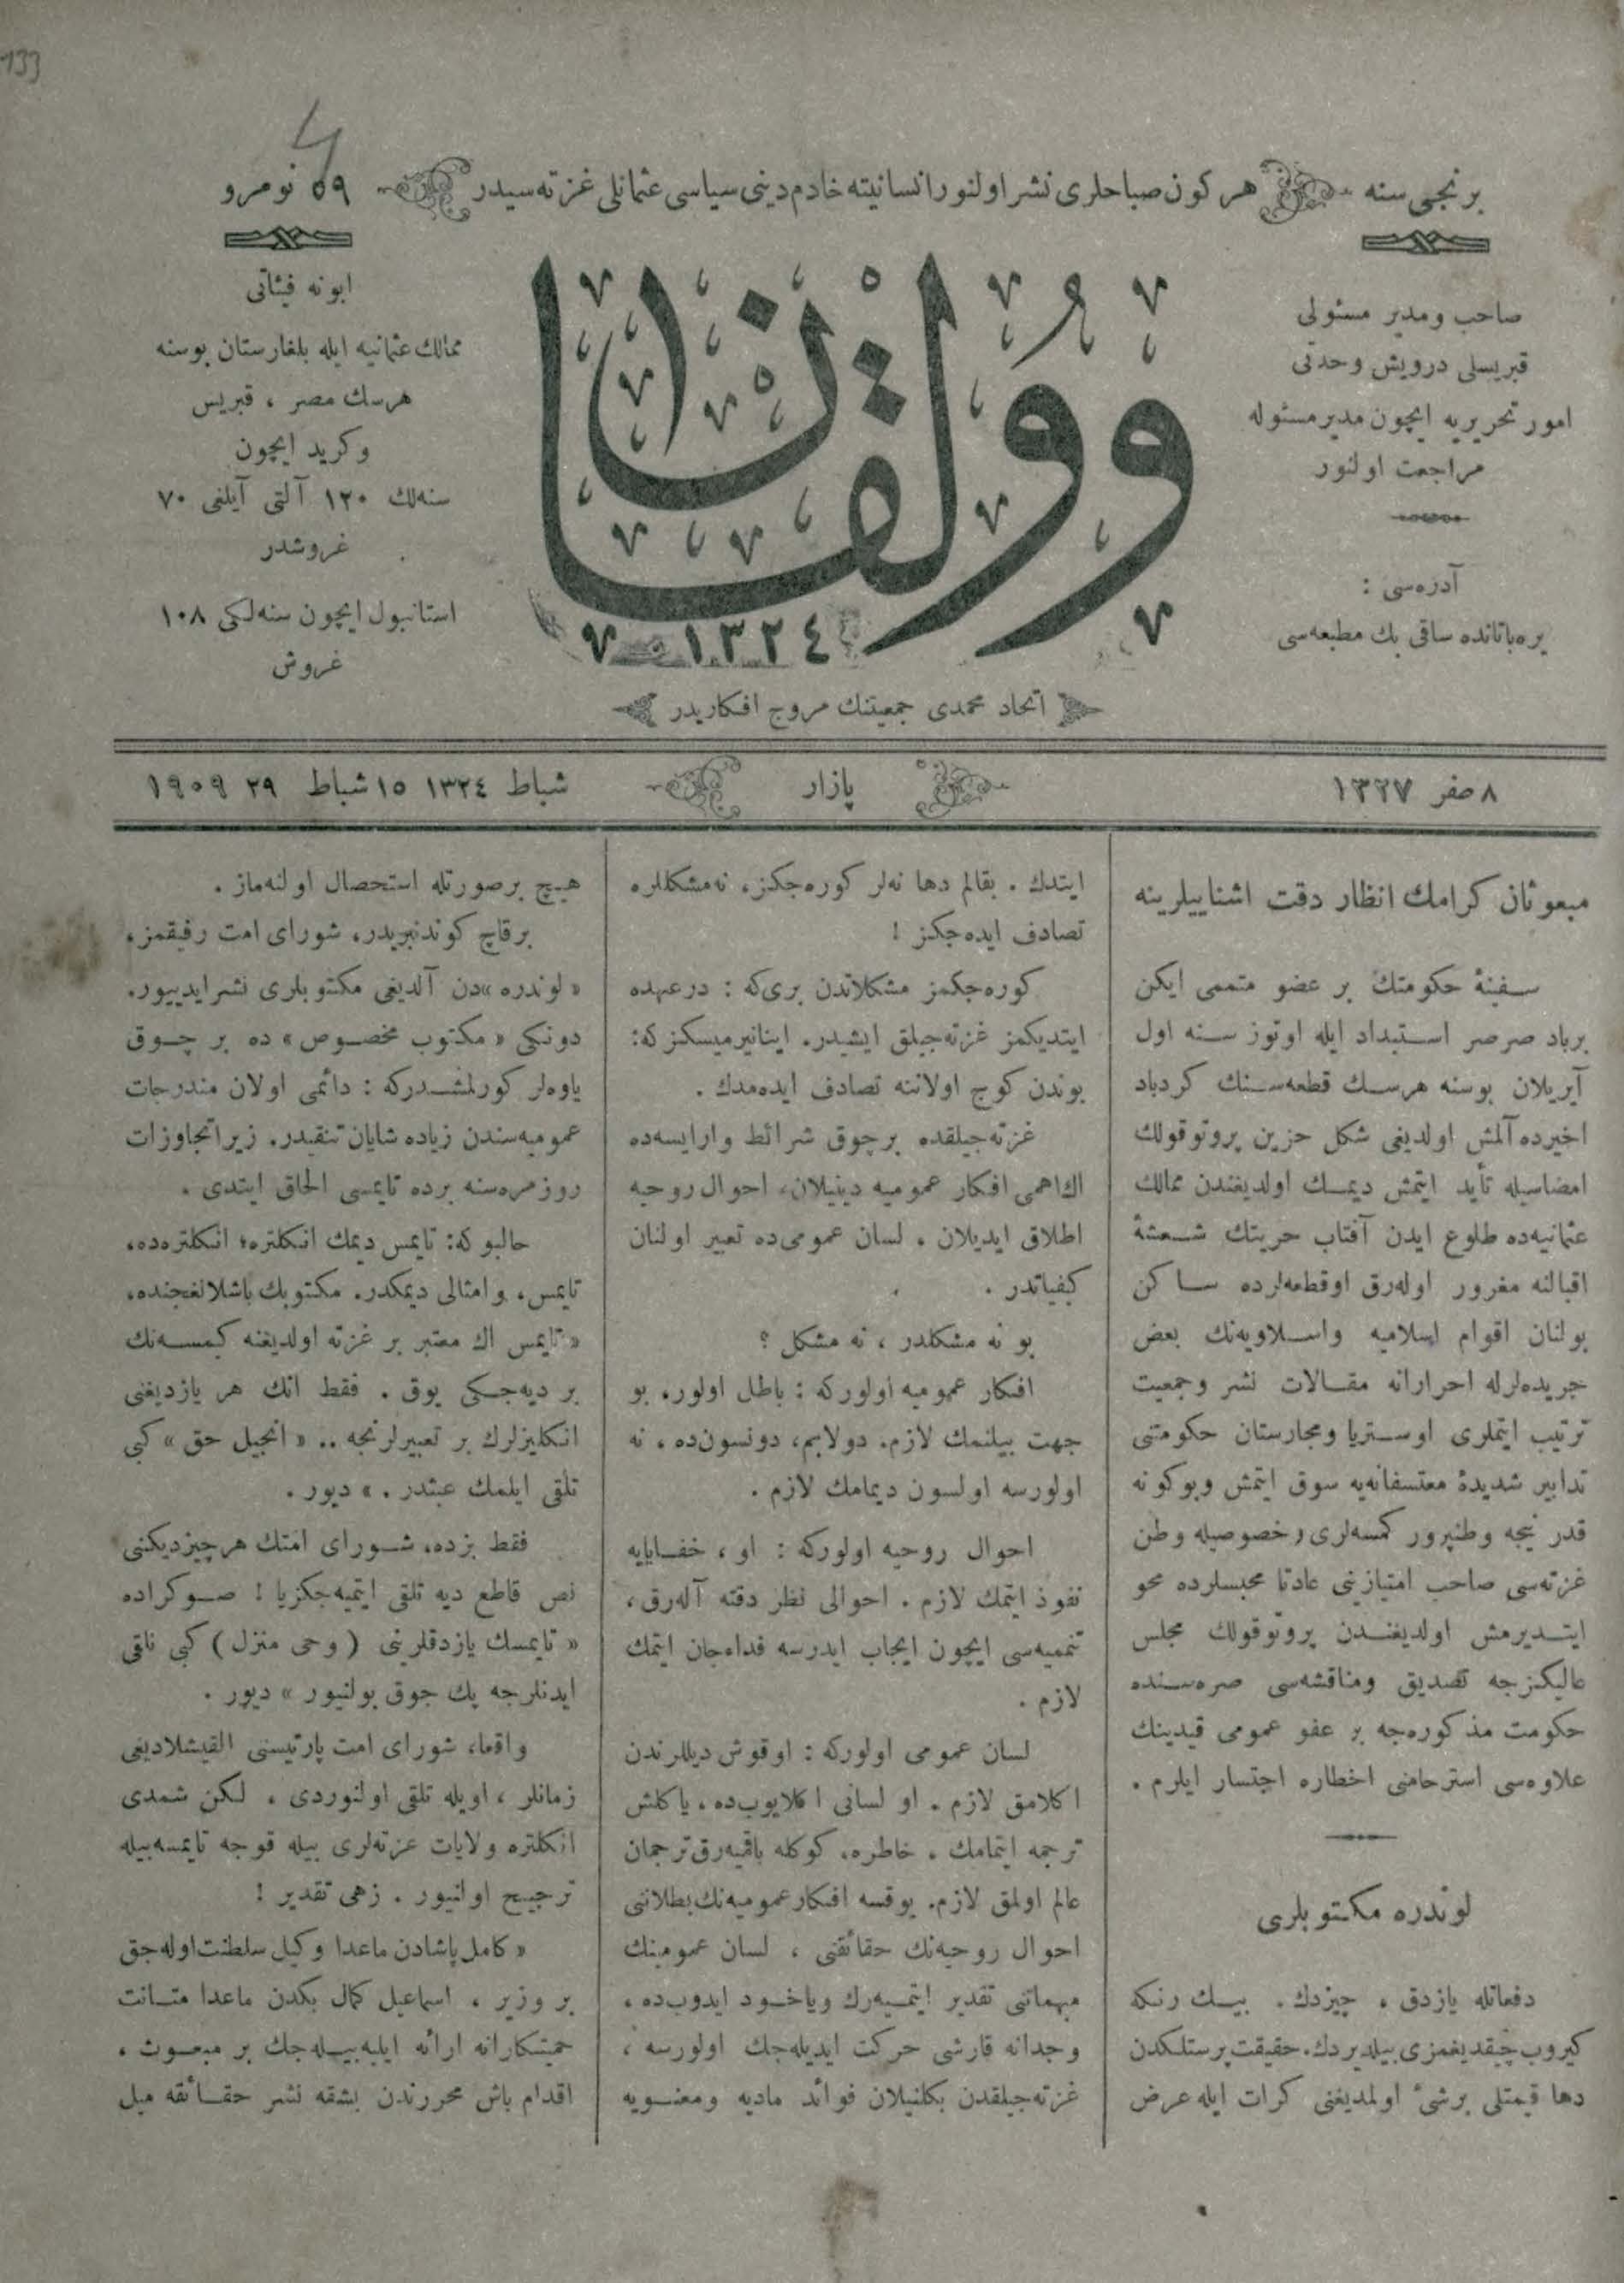 133
4
برنجی سنه
هر كون صباحلری نشر اولنور انسانیته خادم دینی سیاسی عثمانلی غزته سیدر
٥٩ نومرو
صاحب و مدیر مسئولی
قبریسلی درویش وحدتی
امور تحریریه ایچون مدیر مسئوله
مراجعت اولنور
آدره‌سی :
یره‌باتانده ساقی بك مطبعه‌سی
وولقان
١٣٢٤
ابونه فیئاتی
ممالك عثمانیه ایله بلغارستان بوسنه
هرسك مصر ، قبریس
وكرید ایچون
سنه‌لك ١٢٠ آلتی آیلغی ٧٠
غروشدر
استانبول ایچون سنه‌لكی ١٠٨
غروش
اتحاد محمدی جمعیتنك مروج افكاریدر
٨ صفر ١٣٢٧
پازار
شباط ١٣٢٤ ١٥ شباط ٢٩ ١٩٠٩
مبعوثان كرامك انظار دقت اشناییلرینه
سفینهٔ حكومتك بر عضو متممی ایكن
برباد صرصر استبداد ایله اوتوز سنه اول
آیریلان بوسنه هرسك قطعه‌سنك كردباد
اخیرده آلمش اولدیغی شكل حزین پروتوقولك
امضاسیله تأید ایتمش دیمك اولدیغندن ممالك
عثمانیه‌ده طلوع ایدن آفتاب حریتك شعشعهٔ
اقبالنه مغرور اوله‌رق اوقطعه‌لرده ساكن
بولنان اقوام اسلامیه واسلاویه‌نك بعض
جریده‌لرله احرارانه مقالات نشر وجمعیت
ترتیب ایتملری اوستریا ومجارستان حكومتنی
تدابیر شدیدهٔ معتسفانه‌یه سوق ایتمش وبوكونه
قدر نیجه وطنپرور كمسه‌لری وخصوصیله وطن
غزته‌سی صاحب امتیازینی عادتا محبسلرده محو
ایتدیرمش اولدیغندن پروتوقولك مجلس
عالیكزجه تصدیق ومناقشه‌سی صره‌سنده
حكومت مذكوره‌جه بر عفو عمومی قیدینك
علاوه‌سی استرحامنی اخطاره اجتسار ایلرم .
لوندره مكتوبلری
دفعاتله یازدق ، چیزدك . بیك رنكه
كیروب چیقدیغمزی بیلدیردك. حقیقت پرستلكدن
دها قیمتلی برشیٔ اولمدیغنی كرات ایله عرض
ایتدك . بقالم دها نه‌لر كوره‌جكز، نه‌مشكللره
تصادف ایده‌جكز !
كوره‌جكمز مشكلاتدن بری‌كه : درعهده
ایتدیكمز غزته‌جیلق ایشیدر. اینانیرمیسكز كه:
بوندن كوج اولاننه تصادف ایده‌مدك .
غزته‌جیلقده برچوق شرائط وارایسه‌ده
اك‌اهمی افكار عمومیه دینیلان، احوال روحیه
اطلاق ایدیلان . لسان عمومی‌ده تعبیر اولنان
كیفیاتدر .
بو نه مشكلدر ، نه مشكل ؟
افكار عمومیه اولوركه : باطل اولور. بو
جهت بیلنمك لازم. دولابم، دونسون‌ده ، نه
اولورسه اولسون دیمامك لازم .
احوال روحیه اولوركه : او ، خفایایه
نفوذ ایتمك لازم . احوالی نظر دقته آله‌رق ،
تنمیه‌سی ایچون ایجاب ایدرسه فداءجان ایتمك
لازم .
لسان عمومی اولوركه : اوقوش دیللرندن
اكلامق لازم . او لسانی اكلایوب‌ده ، یاكلش
ترجمه ایتمامك . خاطره، كوكله باقمیه‌رق ترجمان
عالم اولمق لازم. یوقسه افكار عمومیه‌نك بطلاننی
احوال روحیه‌نك حقائقنی ، لسان عمومینك
مهماتنی تقدیر ایتمیه‌رك ویاخود ایدوب‌ده ،
وجدانه قارشی حركت ایدیله‌جك اولورسه ،
غزته‌جیلقدن بكلنیلان فوائد مادیه ومعنویه
هیچ برصورتله استحصال اولنه‌ماز .
برقاچ كوندنبریدر، شورای امت رفیقمز،
« لوندره »دن آلدیغی مكتوبلری نشر ایدییور.
دونكی « مكتوب مخصوص » ده بر چوق
یاوه‌لر كورلمشدركه : دائمی اولان مندرجات
عمومیه‌سندن زیاده شایان تنقیدر. زیرا تجاوزات
روزمره‌سنه برده تایمسی الحاق ایتدی .
حالبوكه: تایمس دیمك انكلتره؛ انكلتره‌ده،
تایمس، وامثالی دیمكدر. مكتوبك باشلانغجنده،
« تایمس اك معتبر بر غزته اولدیغنه كیمسه‌نك
بر دیه‌جكی یوق . فقط انك هر یازدیغنی
انكلیزلرك بر تعبیرلرنجه .. « انجیل حق » كبی
تلقی ایلمك عبثدر . » دیور .
فقط بزده، شورای امتك هرچیزدیكنی
نص قاطع دیه تلقی ایتمیه‌جكزیا ! صوكراده
« تایمسك یازدقلرینی ( وحی منزل ) كبی تلقی
ایدنلرجه پك جوق بولنیور » دیور .
واقعا، شورای امت پارتیسنی القیشلادیغی
زمانلر ، اویله تلقی اولنوردی . لكن شمدی
انكلتره ولایات غزته‌لری بیله قوجه تایمسه‌بیله
ترجیح اولنیور . زهی تقدیر !
« كامل پاشادن ماعدا وكیل سلطنت اوله‌جق
بر وزیر ، اسماعیل كمال بكدن ماعدا متانت
حمیتكارانه ارائه ایلیه‌بیله‌جك بر مبعوث ،
اقدام باش محررندن بشقه نشر حقائقه میل